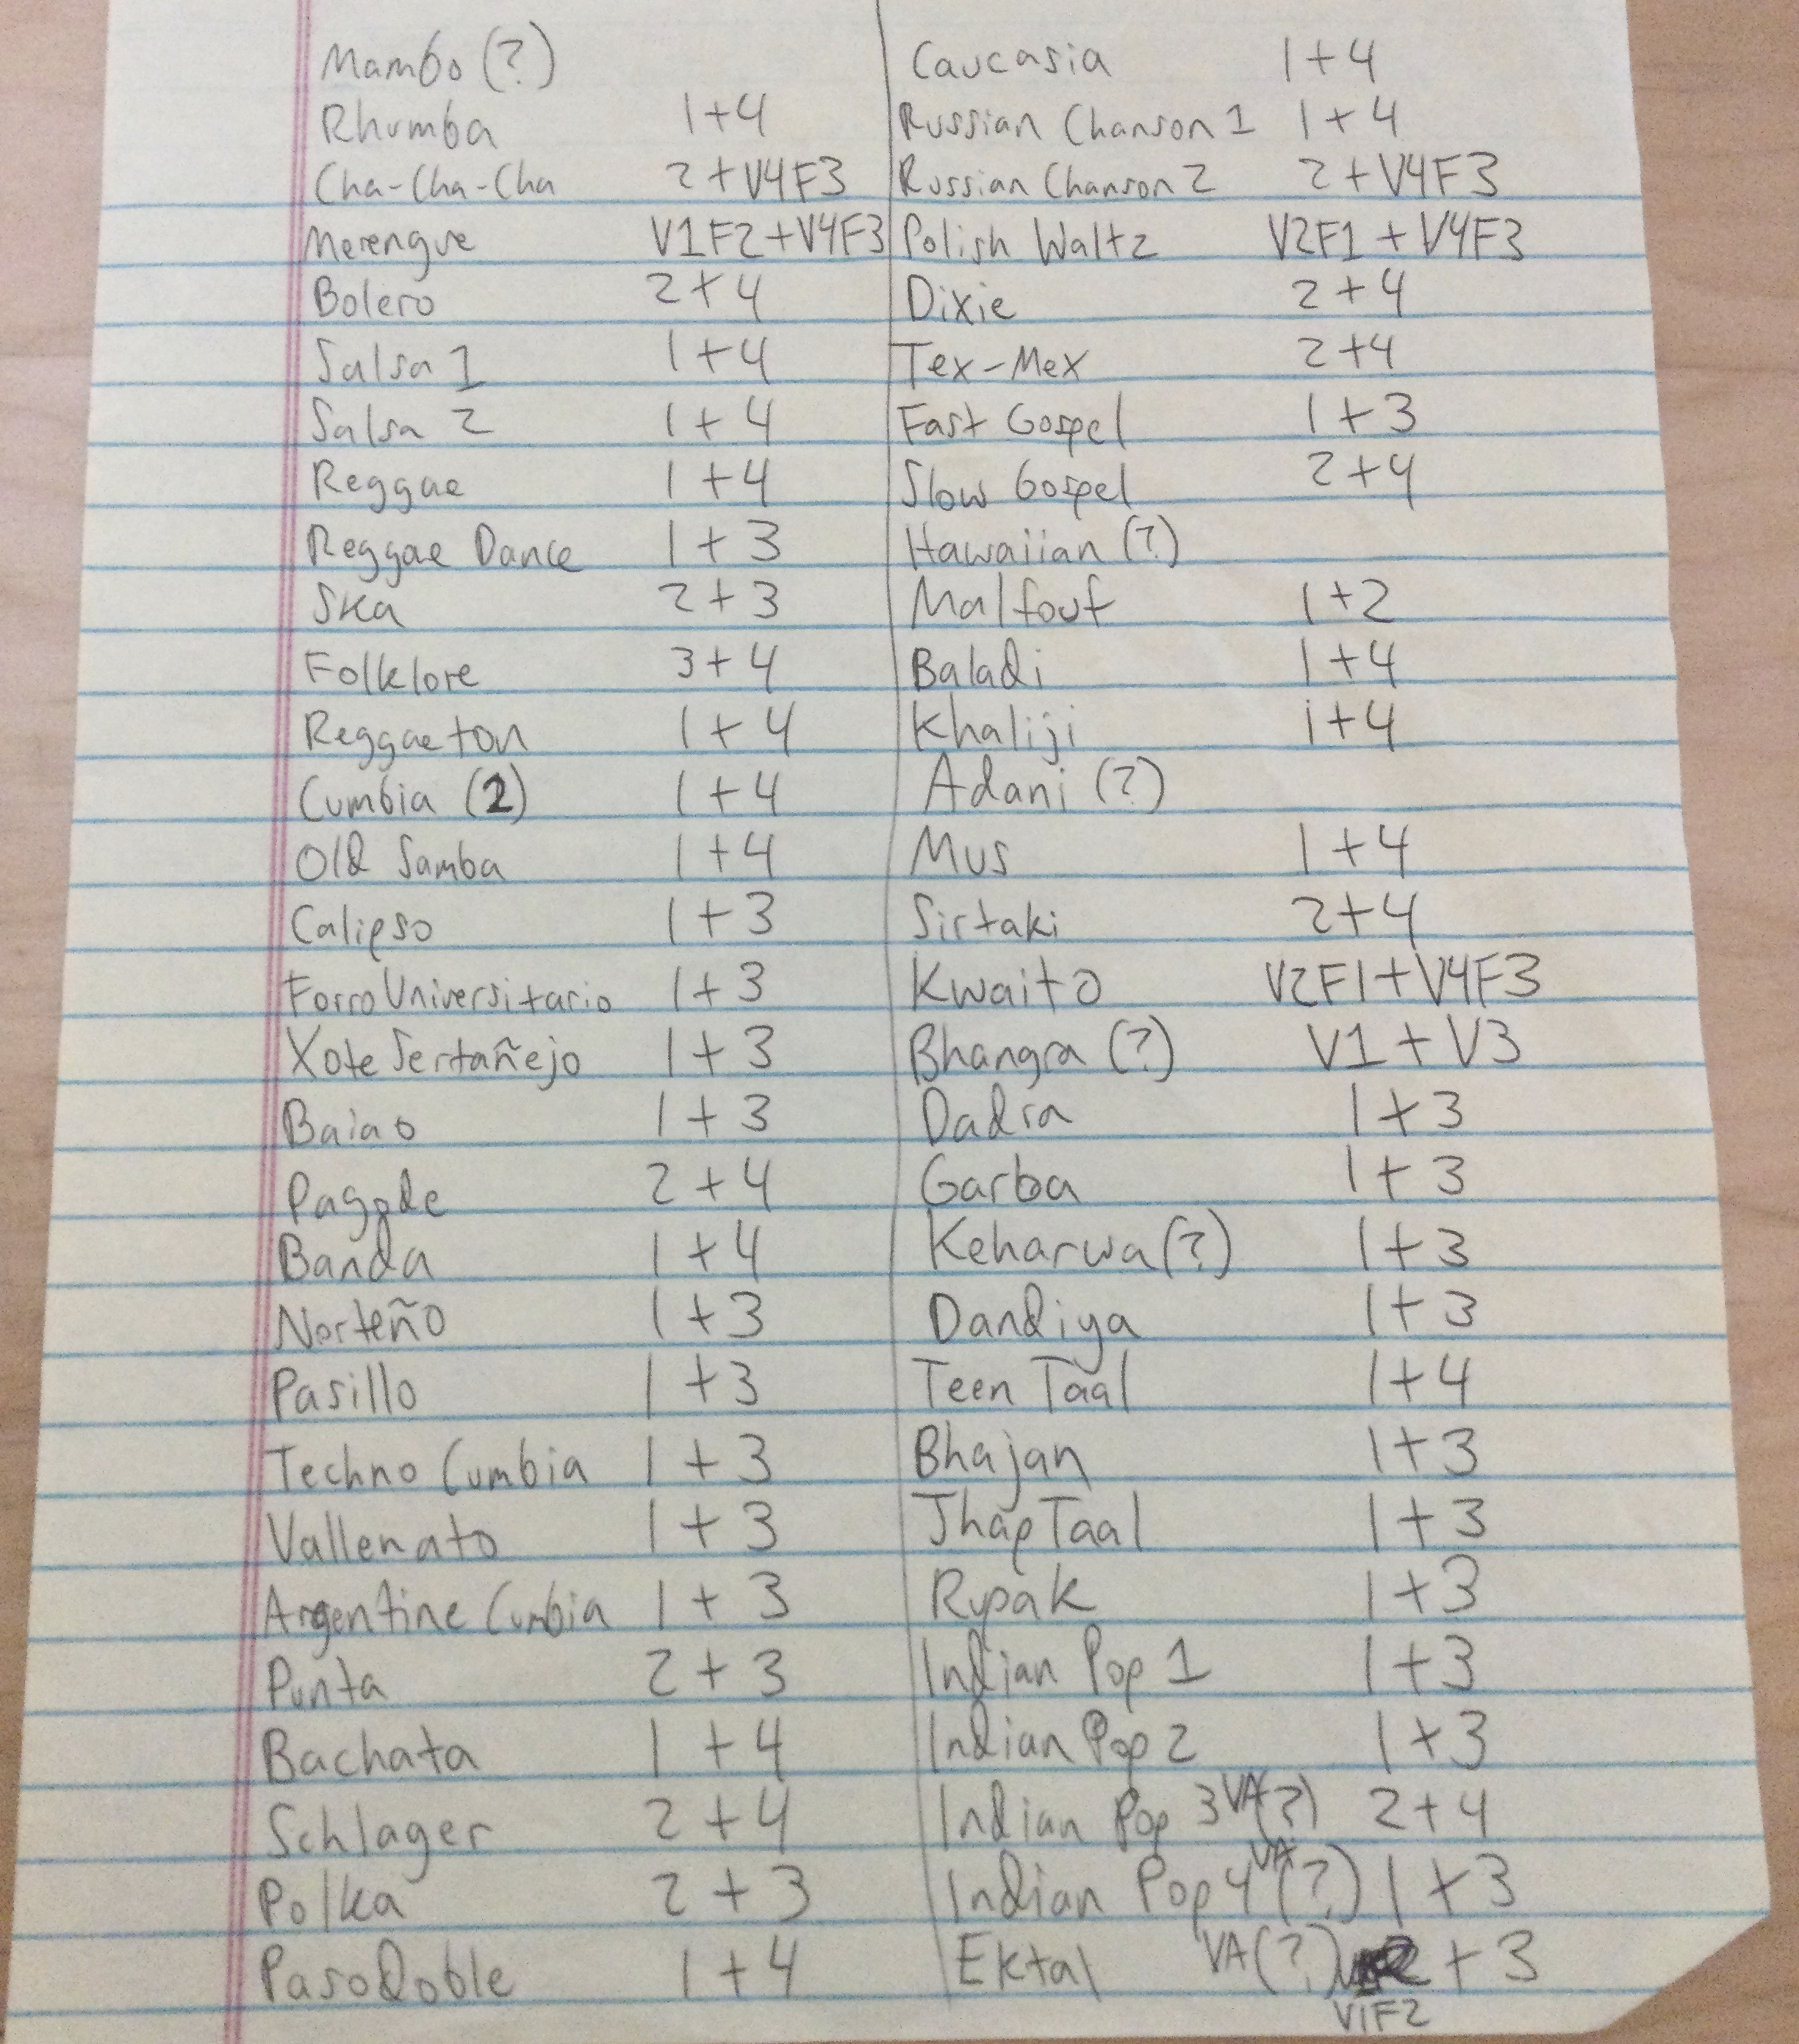 Mambo (?)
Rhumba 1+4
Cha-Cha-Cha 2+V4F3
Merengue V1F2+V4F3
Bolero 2+4
Salsa 1 1+4
Salsa 2 1+4
Reggae 1+4
Reggae Dance 1+3
Ska 2+3
Folklore 3+4
Reggaeton 1+4
Cumbia (2) 1+4
Old Samba 1+4
Calipso 1+3
Forro Universitario 1+3
Xote Sertañejo 1+3
Baiao 1+3
Pagode 2+4
Banda 1+4
Norteño 1+3
Pasillo 1+3
Techno Cumbia 1+3
Vallenato 1+3
Argentine Cumbia 1+3
Punta 2+3
Bachata 1+4
Schlager 2+4
Polka 2+3
PasoDoble 1+4
Caucasia 1+4
Russian Chanson 1 1+4
Russian Chanson 2 2+V4F3
Polish Waltz V2F1+V4F3
Dixie 2+4
Tex-Mex 2+4
Fast Gospel 1+3
Slow Gospel 2+4
Hawaiian (?)
Malfouf 1+2
Baladi 1+4
Khaliji 1+4
Adani (?)
Mus 1+4
Sirtaki 2+4
Kwaito V2F1+V4F3
Bhangra (?) V1+V3
Dadra 1+3
Garba 1+3
Keharwa(?) 1+3
Dandiya 1+3
Teen Taal 1+4
Bhajan 1+3
Jhap Taal 1+3
Rupak 1+3
Indian Pop 1 1+3
Indian Pop 2 1+3
Indian Pop 3 VA(?) 2+4
Indian Pop 4 VA(?) 1+3
Ektal VA(?) +3
V1F2